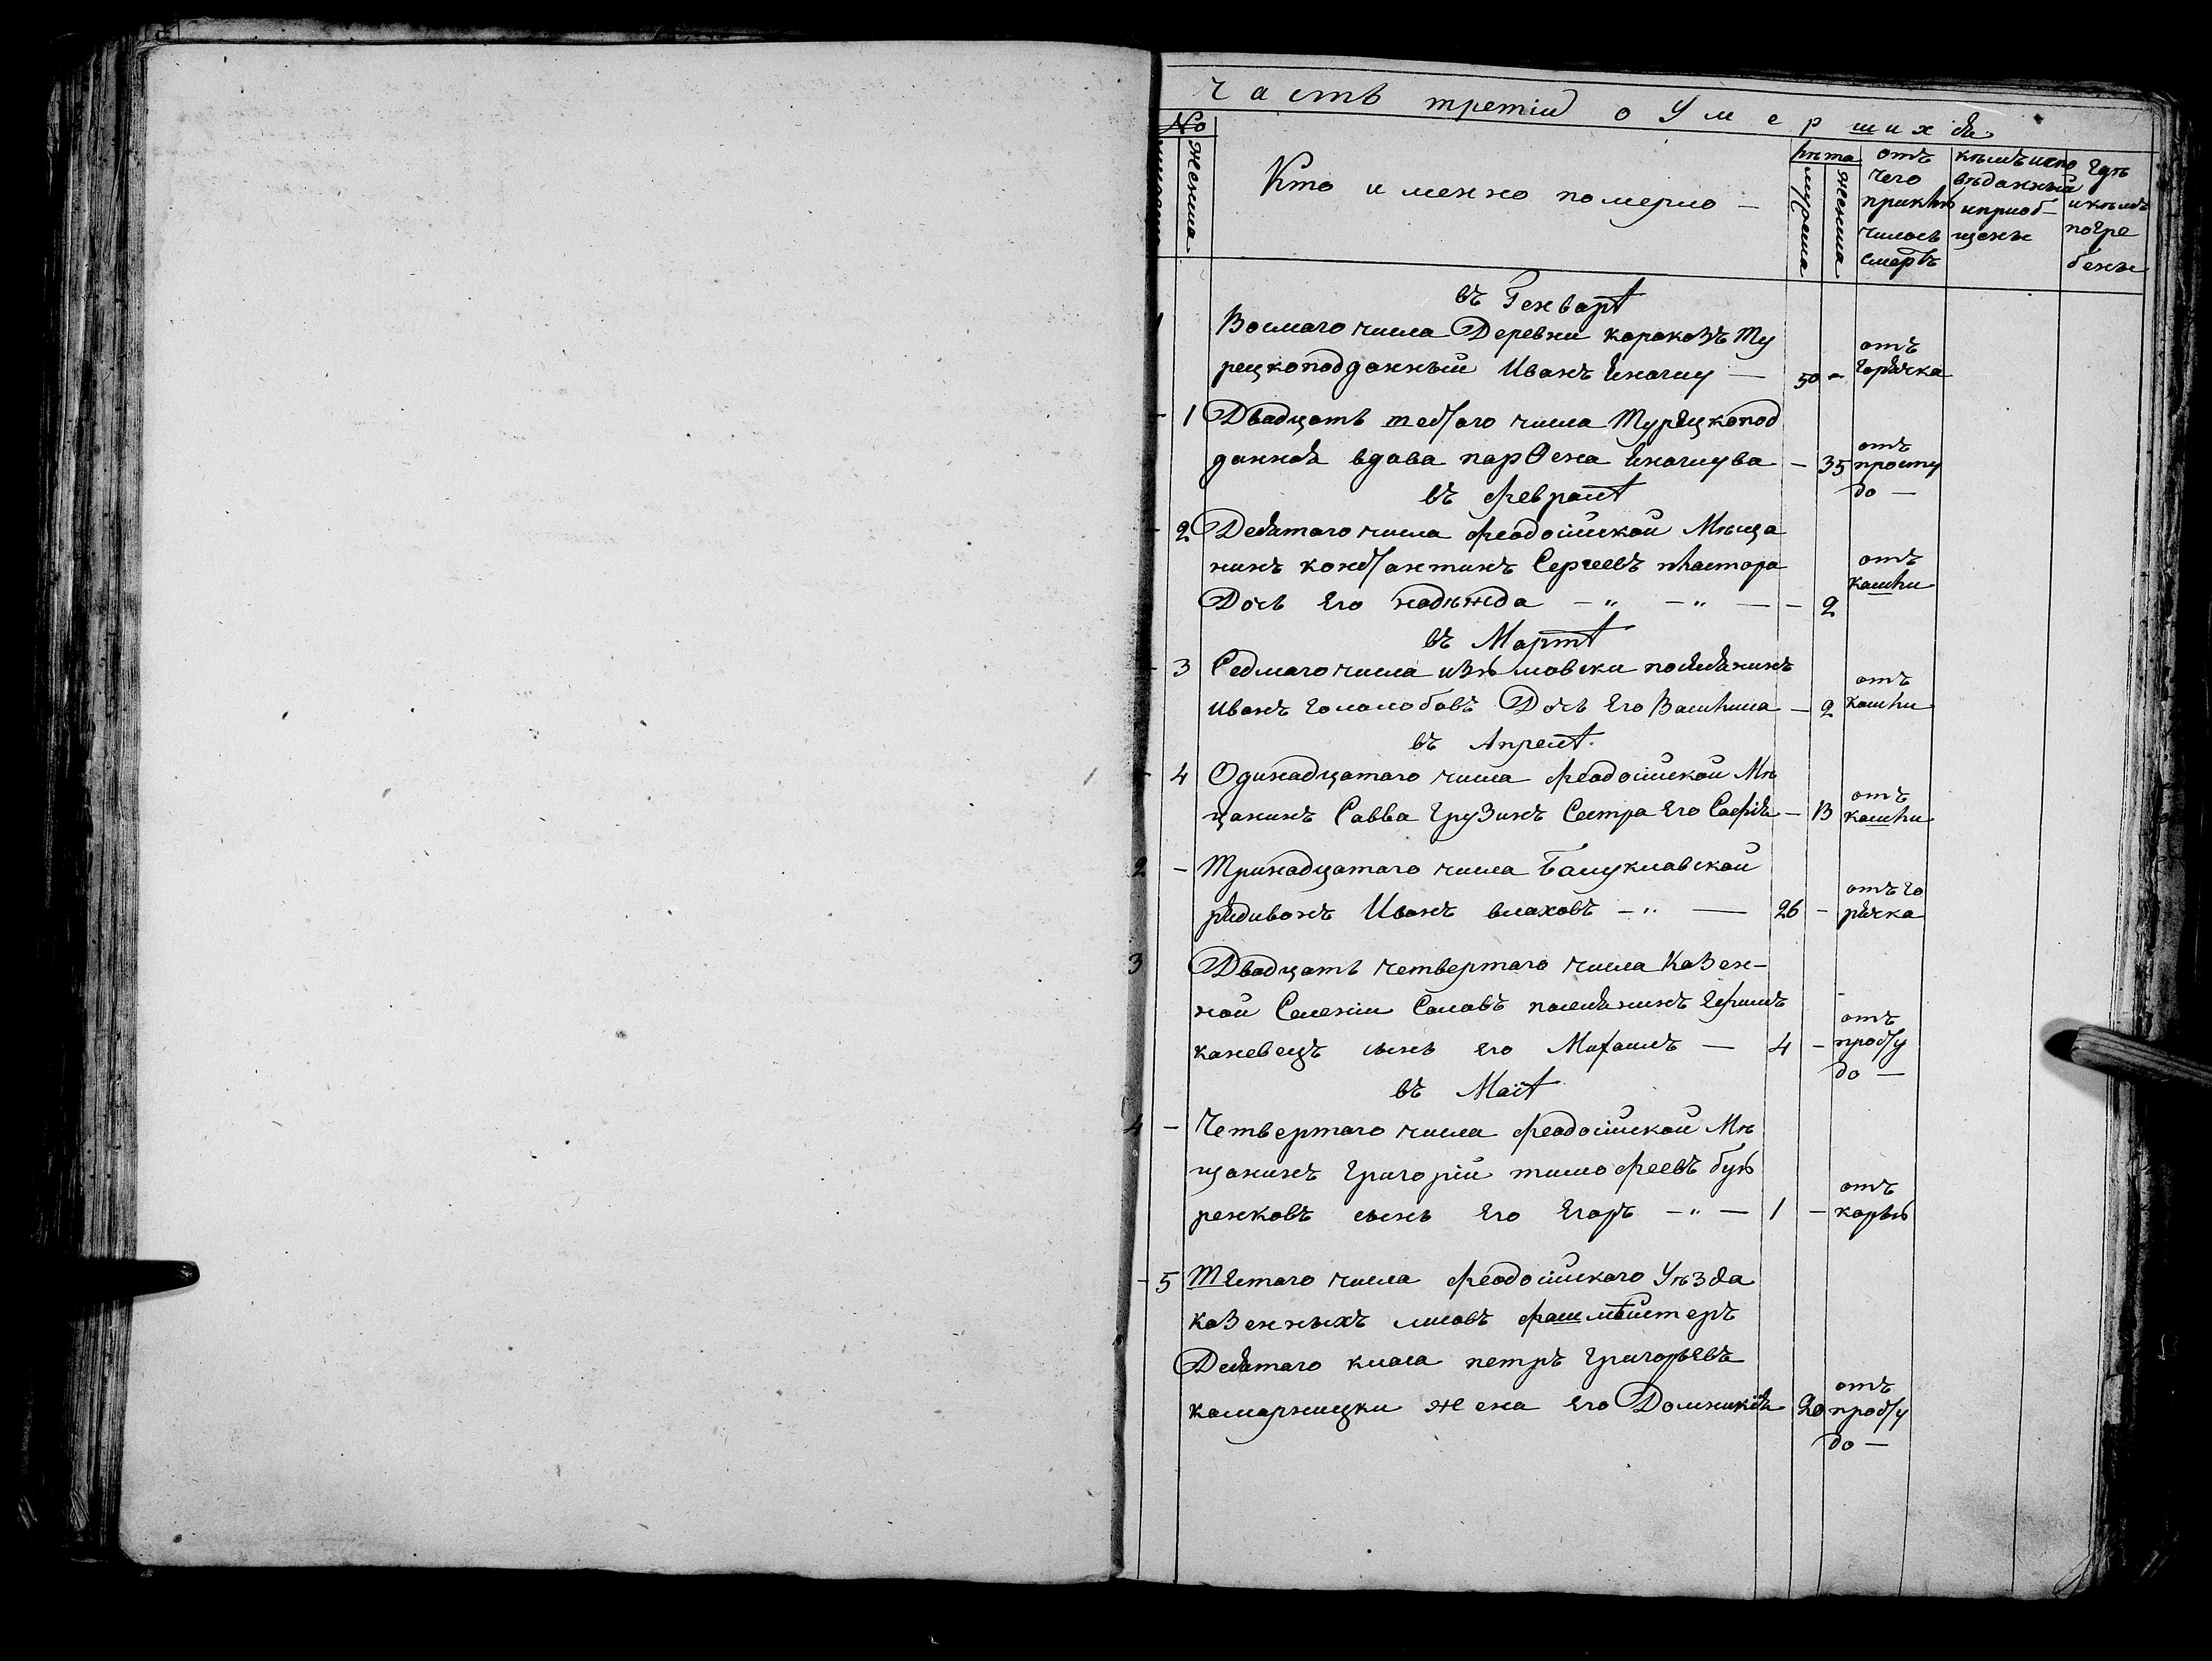 Часть третiй о Умершихъ
No
Женска
Кто именно померло —
лѣта
мужеска
Женска
отъ чего приключилась смерть
кѣмъ исповѣданны и приобщены
гдѣ и кѣмъ погребены
въ Генварѣ
1 Восмаго числа Деревни каракозъ Ту
рецкоподданный Иванъ — 50 - отъ горячка
- 1 Двадцать шестаго числа Турецкопод
данная вдава парѳена — 35 отъ просту
до —
въ февралѣ
- 2 Девятаго числа феодосiйской Мѣща
нинъ константинъ Сергеевъ
Дочь Его надѣжда — „ — „ — - 2 отъ кашли
въ Мартѣ
- 3 Седмаго числа поселянинъ
иванъ голополобовъ Дочь Его Василиса — 2 отъ кашли
въ Апрелѣ
- 4 Одинадцатаго числа феодосiйской Мѣ
щанинъ Савва Грузинъ Сестра Его Сафiя — 13 отъ кашли
2 - Тринадцатаго числа Балуклавской
Иванъ влаховъ — „ — 26 - отъ го
рячка
3 Двадцать четвертаго числа Казен-
ной Селенiи Салавъ поселянинъ Ефимъ
каневецъ сынъ Его Михаилъ — 4 - отъ просту
до —
въ Маiѣ
4 - Четвертаго числа феодосiйской Мѣ
щанинъ Григорiй тимофеевъ
ренковъ сынъ Его Егоръ — „ — 1 - отъ корью
- 5 Шестаго числа феодосiйскаго Уѣзда
Казенныхъ лисовъ фашмейстеръ
Девятаго класа петръ Григорьевъ
камарницки жена Его Домникiя 20 отъ просту
до —